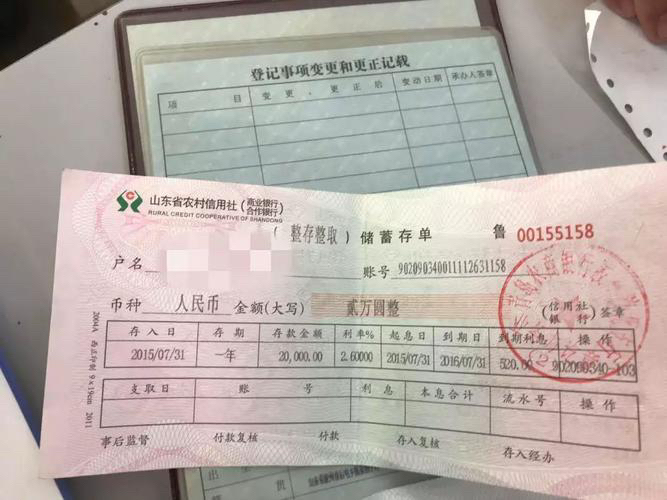 登记事项变更和更正记载
项 目 变更、更正后 变动日期 承办人签章
山东省农村信用社(商业银行 合作银行)
RURAL CREDIT COOPERATIVE OF SHANDONG
(整存整取)储蓄存单 鲁 00155158
户名
账号 90209034001112631158
币种 人民币 金额(大写) 贰万圆整 (信用社 银行)签章
存入日 存期 存款金额 利率% 起息日 到期日 到期利息 操作
2015/07/31 一年 20,000.00 2.60000 2015/07/31 2016/07/31 520.00 902090340-103
支取日 账 号 利息 本息合计 流水号 操作
事后监督 付款复核 付款 存入复核 存入经办
2004A 9×19cm 2011